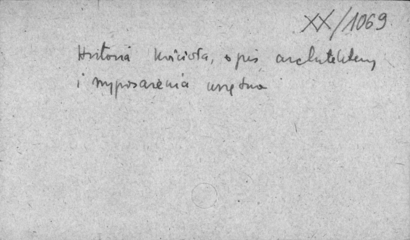 XX/1069
Historia kościoła, opis architektury
i wyposażenia wnętrza